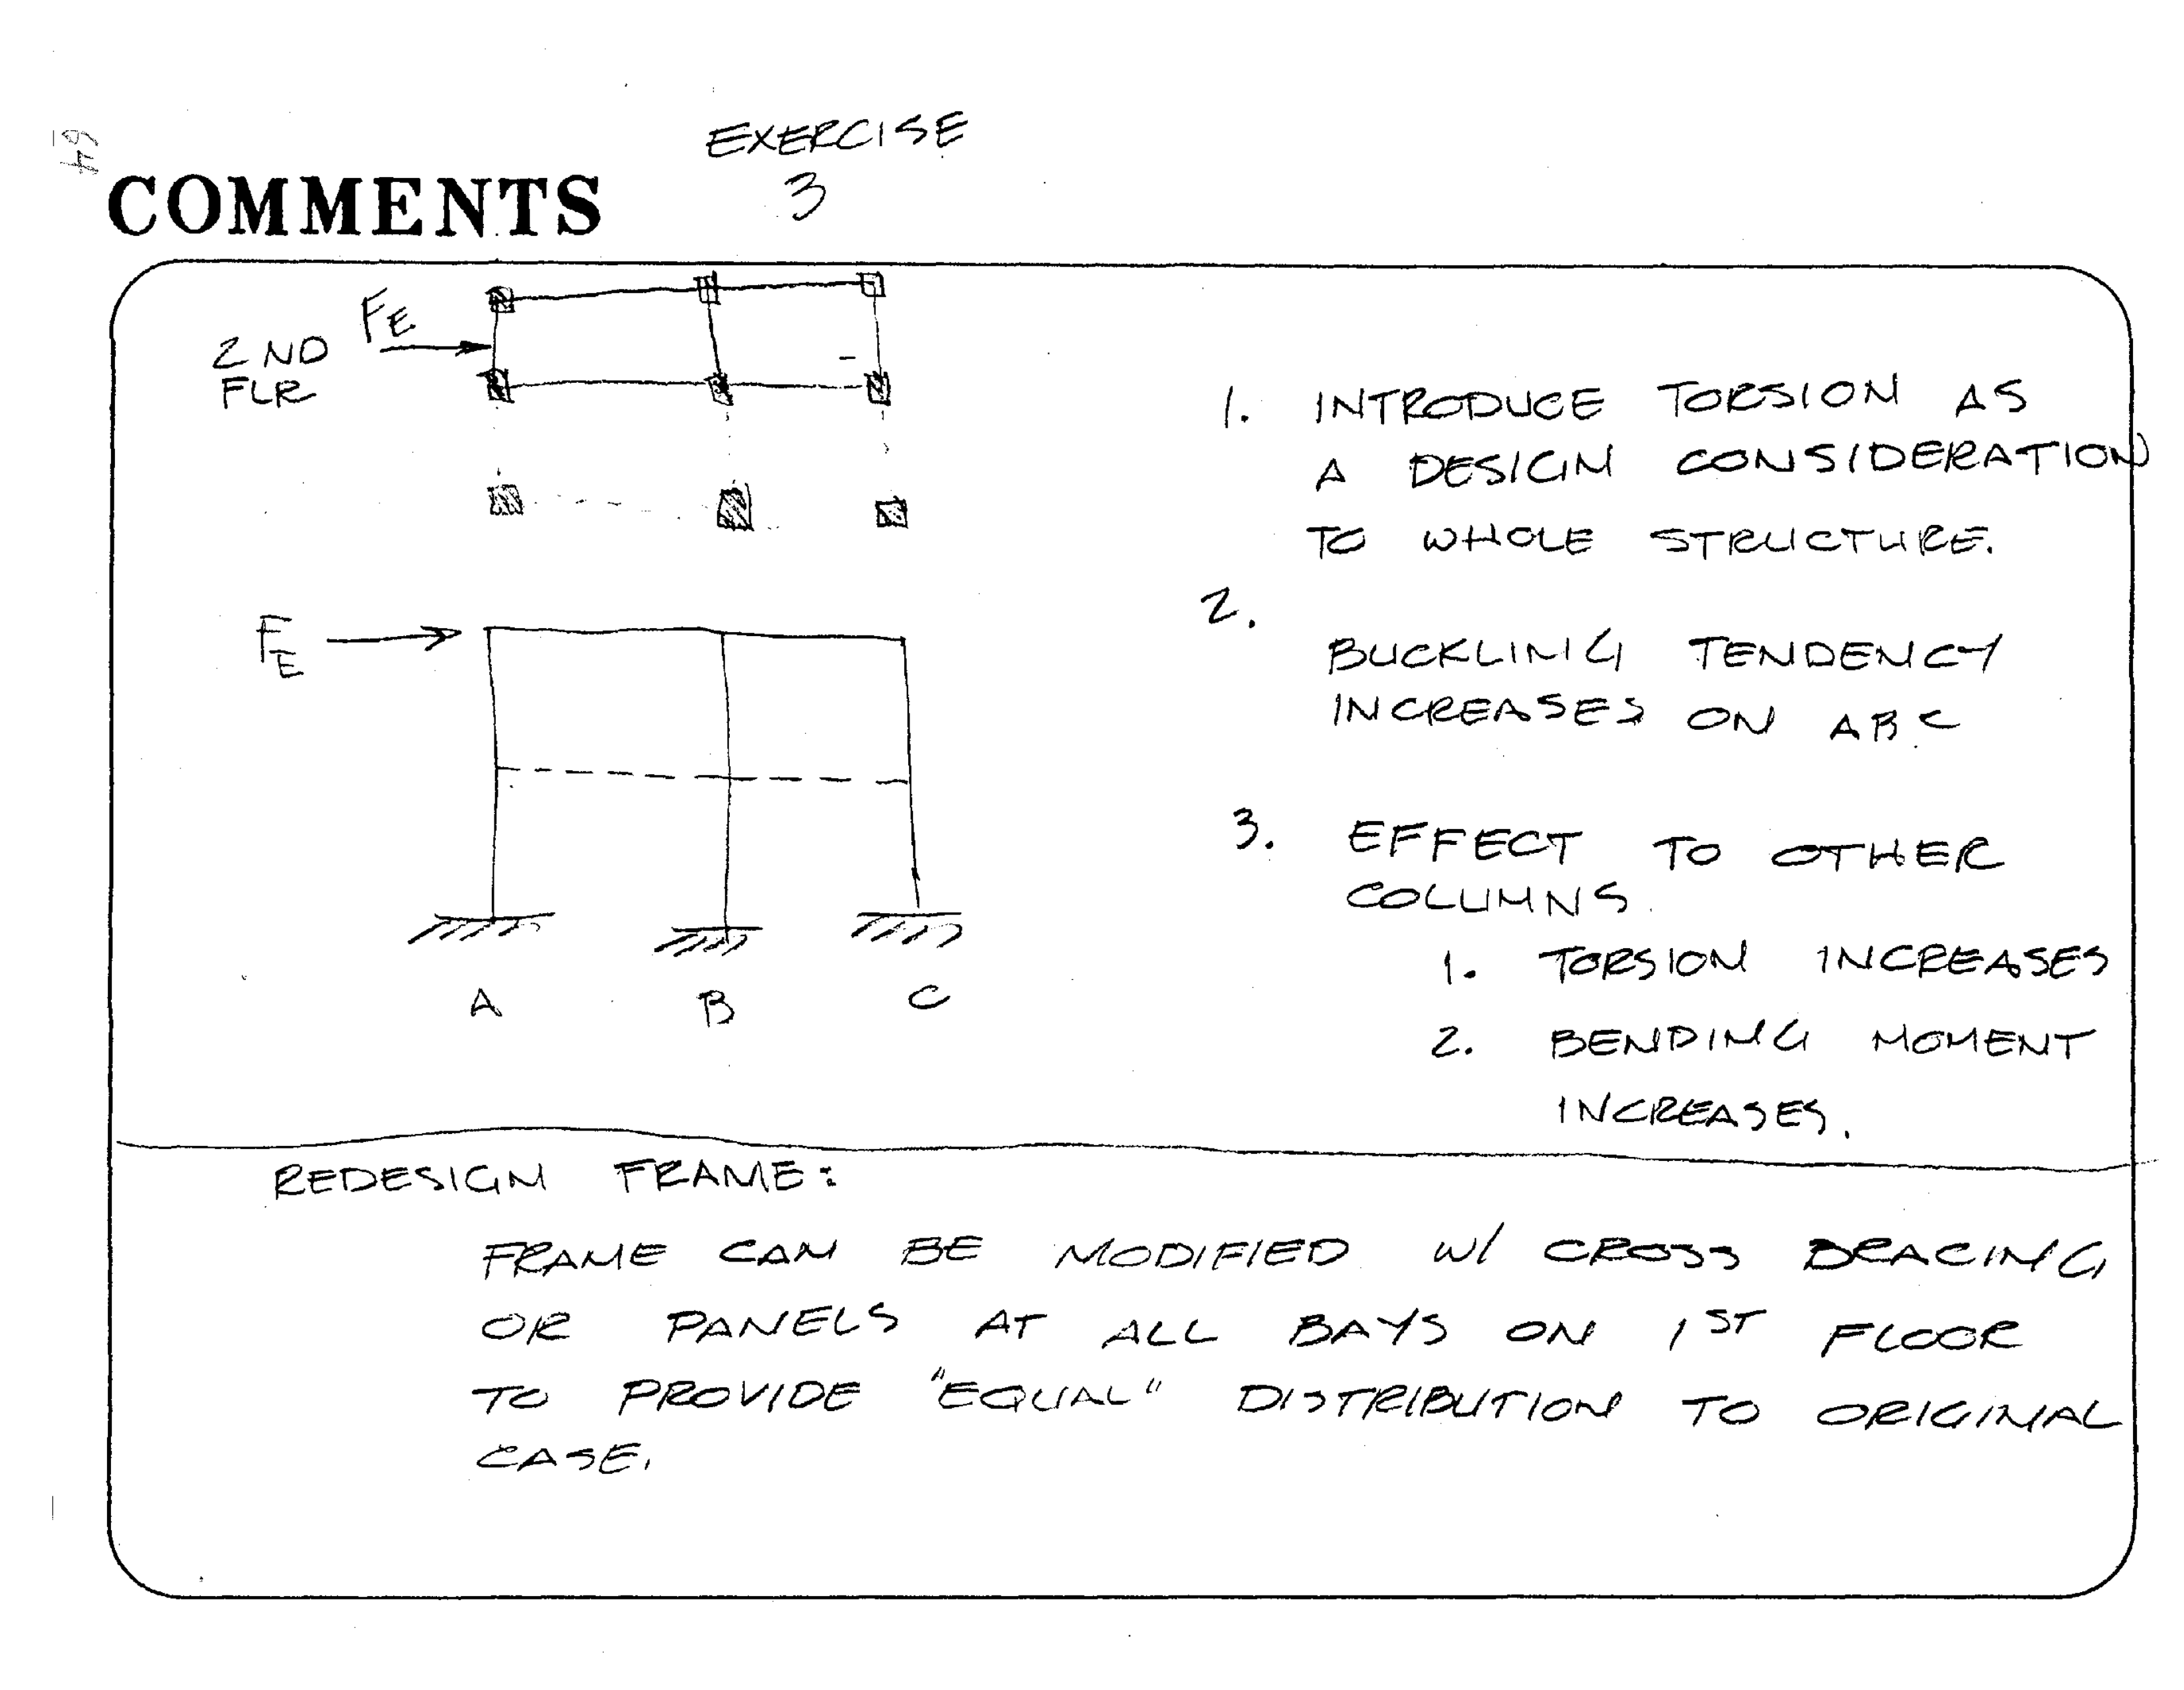 64
EXERCISE
3
COMMENTS
FE
2ND
FLR
FE
A B C
1. INTRODUCE TORSION AS
A DESIGN CONSIDERATION
TO WHOLE STRUCTURE.
2.
BUCKLING TENDENCY
INCREASES ON ABC
3. EFFECT TO OTHER
COLUMNS.
1. TORSION INCREASES
2. BENDING MOMENT
INCREASES.
REDESIGN FRAME:
FRAME CAN BE MODIFIED W/ CROSS BRACING
OR PANELS AT ALL BAYS ON 1ST FLOOR
TO PROVIDE "EQUAL" DISTRIBUTION TO ORIGINAL
CASE.